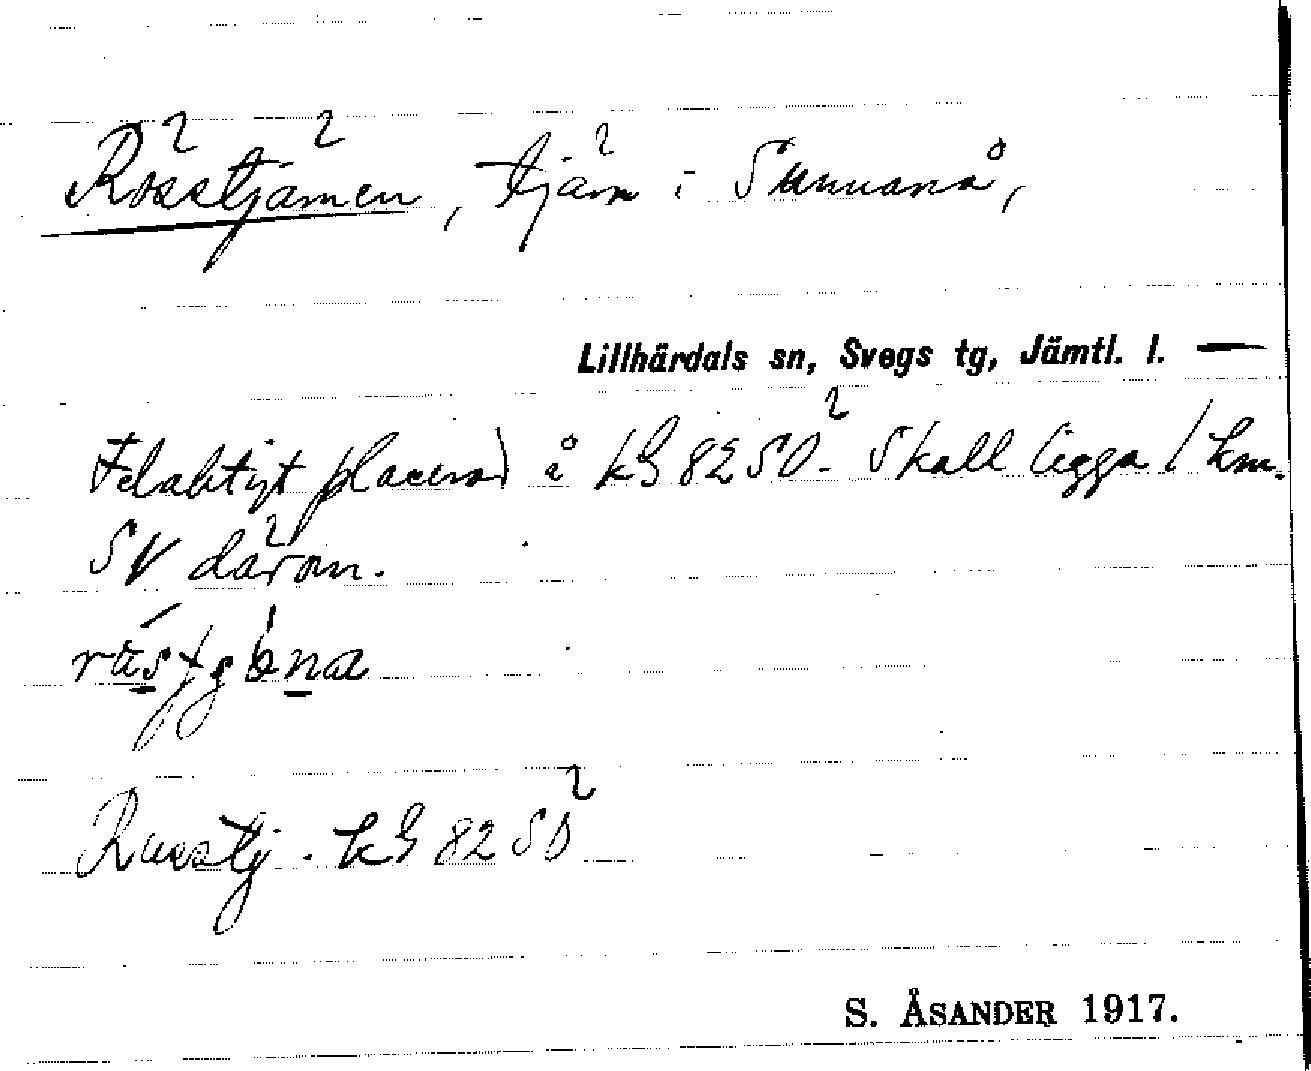 Rösstjärnen, tjärn i Sunnanå,
Lillhärdals sn, Svegs tg, Jämtl. l. —
Felaktigt placerad å kG 82 SO. Skall ligga 1 km.
SV därom.
Russtj. kG 82 SO
S. ÅSANDER 1917.